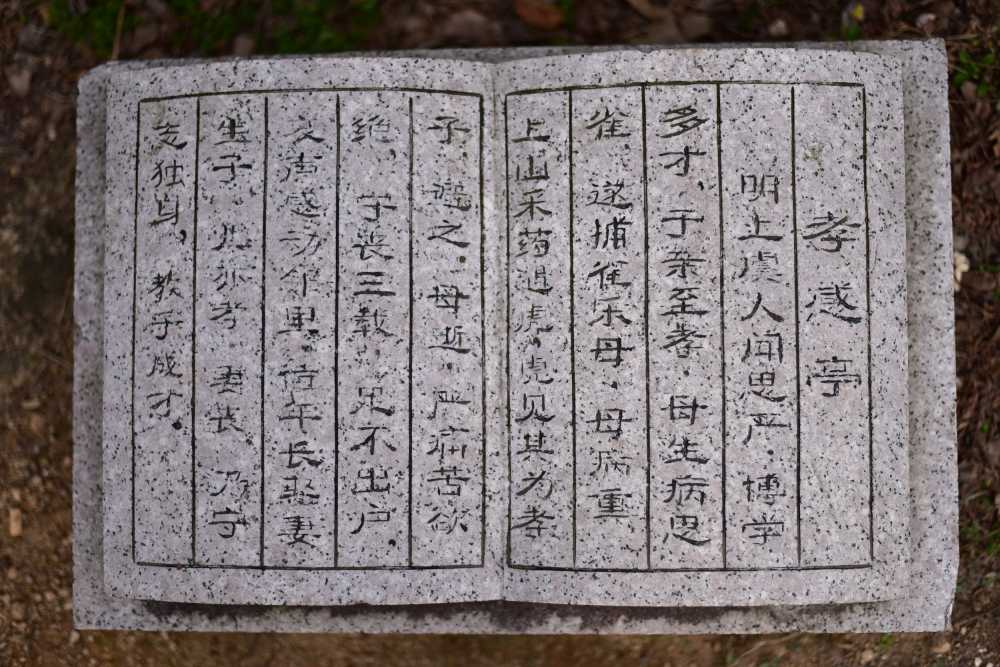 孝感亭
明上虞人闻思严，博学
多才，于亲至孝，母生病思
雀，遂捕雀乐母，母病重
上山采药遇虎，虎见其为孝
子，避之，母逝，严痛苦欲
绝，守丧三载，足不出户
哀声感动邻里，值年长娶妻
生子，儿亦孝，妻丧 乃守
志独身，教子成才。